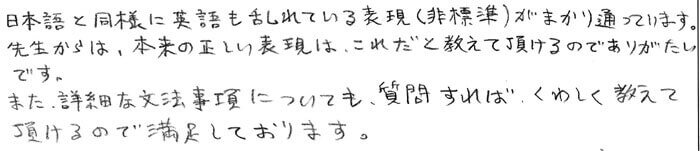 日本語と同様に英語も乱れている表現(非標準)がまかり通っています。
先生からは、本来の正しい表現は、これだと教えて頂けるのでありがたい
です。
また、詳細な文法事項についても、質問すれば、くわしく教えて
頂けるので満足しております。